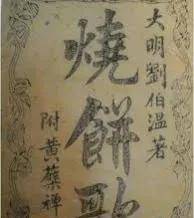 大明劉伯温著
燒餅歌
附黃蘗禪